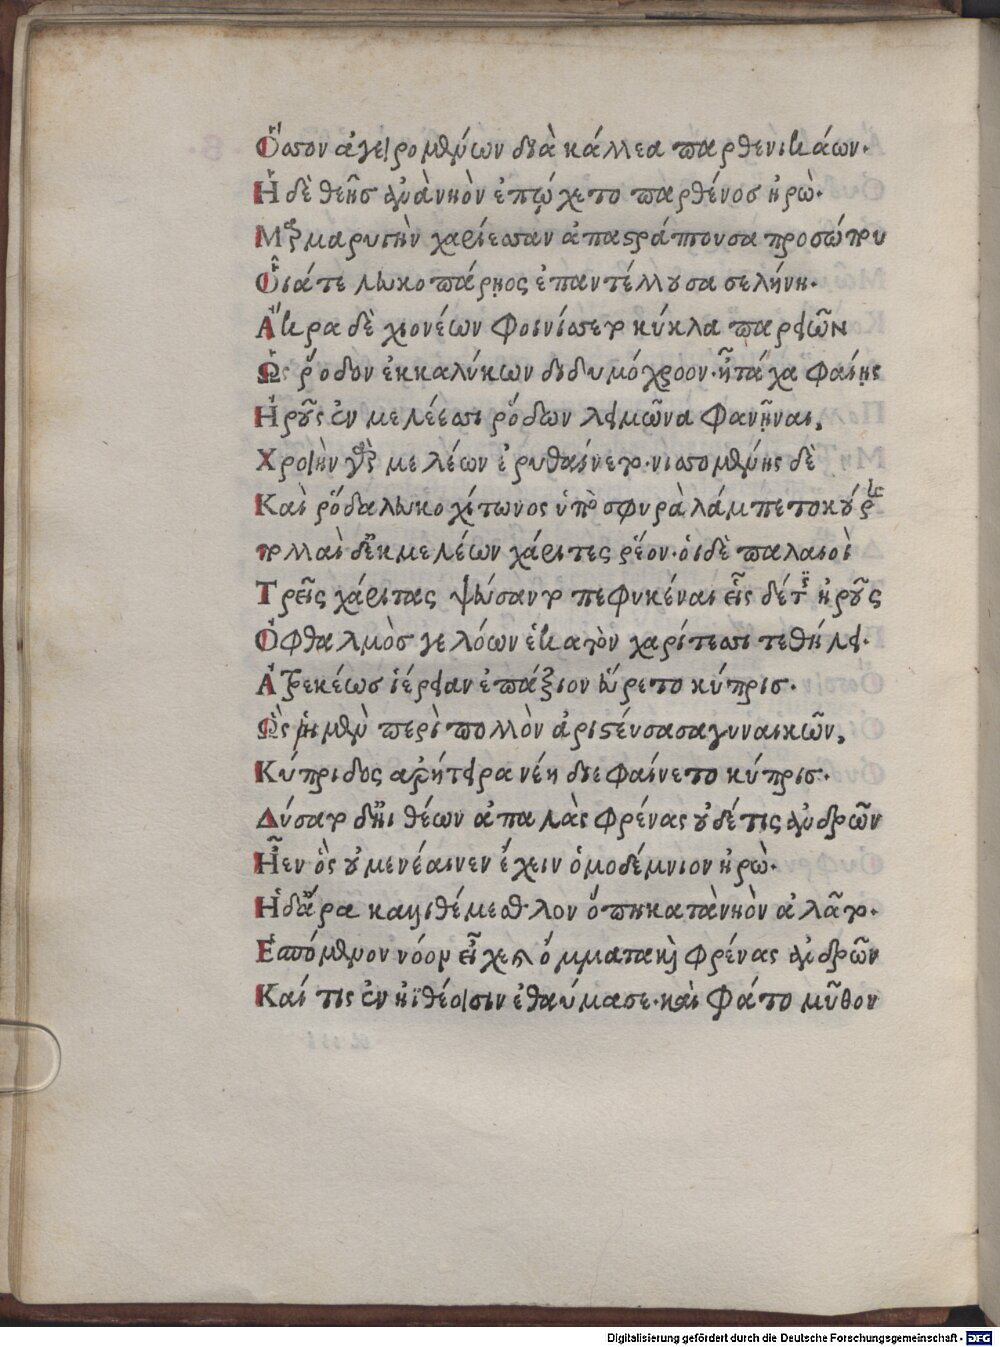 Ὅσσον ἀγειρομένων διὰ κάλλεα παρθενικάων·
Ἡ δὲ θεῆς ἀνὰ νηὸν ἐπῴχετο παρθένος ἡρώ·
Μαρμαρυγὴν χαρίεσσαν ἀπαστράπτουσα προσώπου
Οἷά τε λευκοπάρῃος ἐπαντέλλουσα σελήνη·
Ἄκρα δὲ χιονέων φοινίσσετο κύκλα παρειῶν
Ὡς ῥόδον ἐκ καλύκων διδυμόχροον· ἦ τάχα φαίης
Ἡροῦς ἐν μελέεσσι ῥόδων λειμῶνα φανῆναι,
Χροιὴν γὰρ μελέων ἐρυθαίνετο· νισσομένης δὲ
Καὶ ῥόδα λευκοχίτωνος ὑπὸ σφυρὰ λάμπετο κούρης
πολλαὶ δ' ἐκ μελέων χάριτες ῥέον· οἱ δὲ παλαιοὶ
Τρεῖς χάριτας ψεύσαντο πεφυκέναι εἷς δέ τις ἡροῦς
Ὀφθαλμὸς γελόων ἑκατὸν χαρίτεσσι τεθήλει·
Ἀτρεκέως ἱέρειαν ἐπάξιον εὕρετο κύπρις·
Ὣς ἡ μὲν περὶ πολλὸν ἀριστεύσασα γυναικῶν,
Κύπριδος ἀρήτειρα νέη διεφαίνετο κύπρις·
Δύσατο δ' ἠιθέων ἁπαλὰς φρένας οὐδέ τις ἀνδρῶν
Ἦεν ὃς οὐ μενέαινεν ἔχειν ὁμοδέμνιον ἡρώ·
Ἡ δ' ἄρα καλλιθέμεθλον ὅπη κατὰ νηὸν ἀλᾶτο·
Ἑσπόμενον νόον εἶχε καὶ ὄμματα καὶ φρένας ἀνδρῶν
Καί τις ἐν ἠϊθέοισιν ἐθαύμασε· καὶ φάτο μῦθον
Digitalisierung gefördert durch die Deutsche Forschungsgemeinschaft - DFG